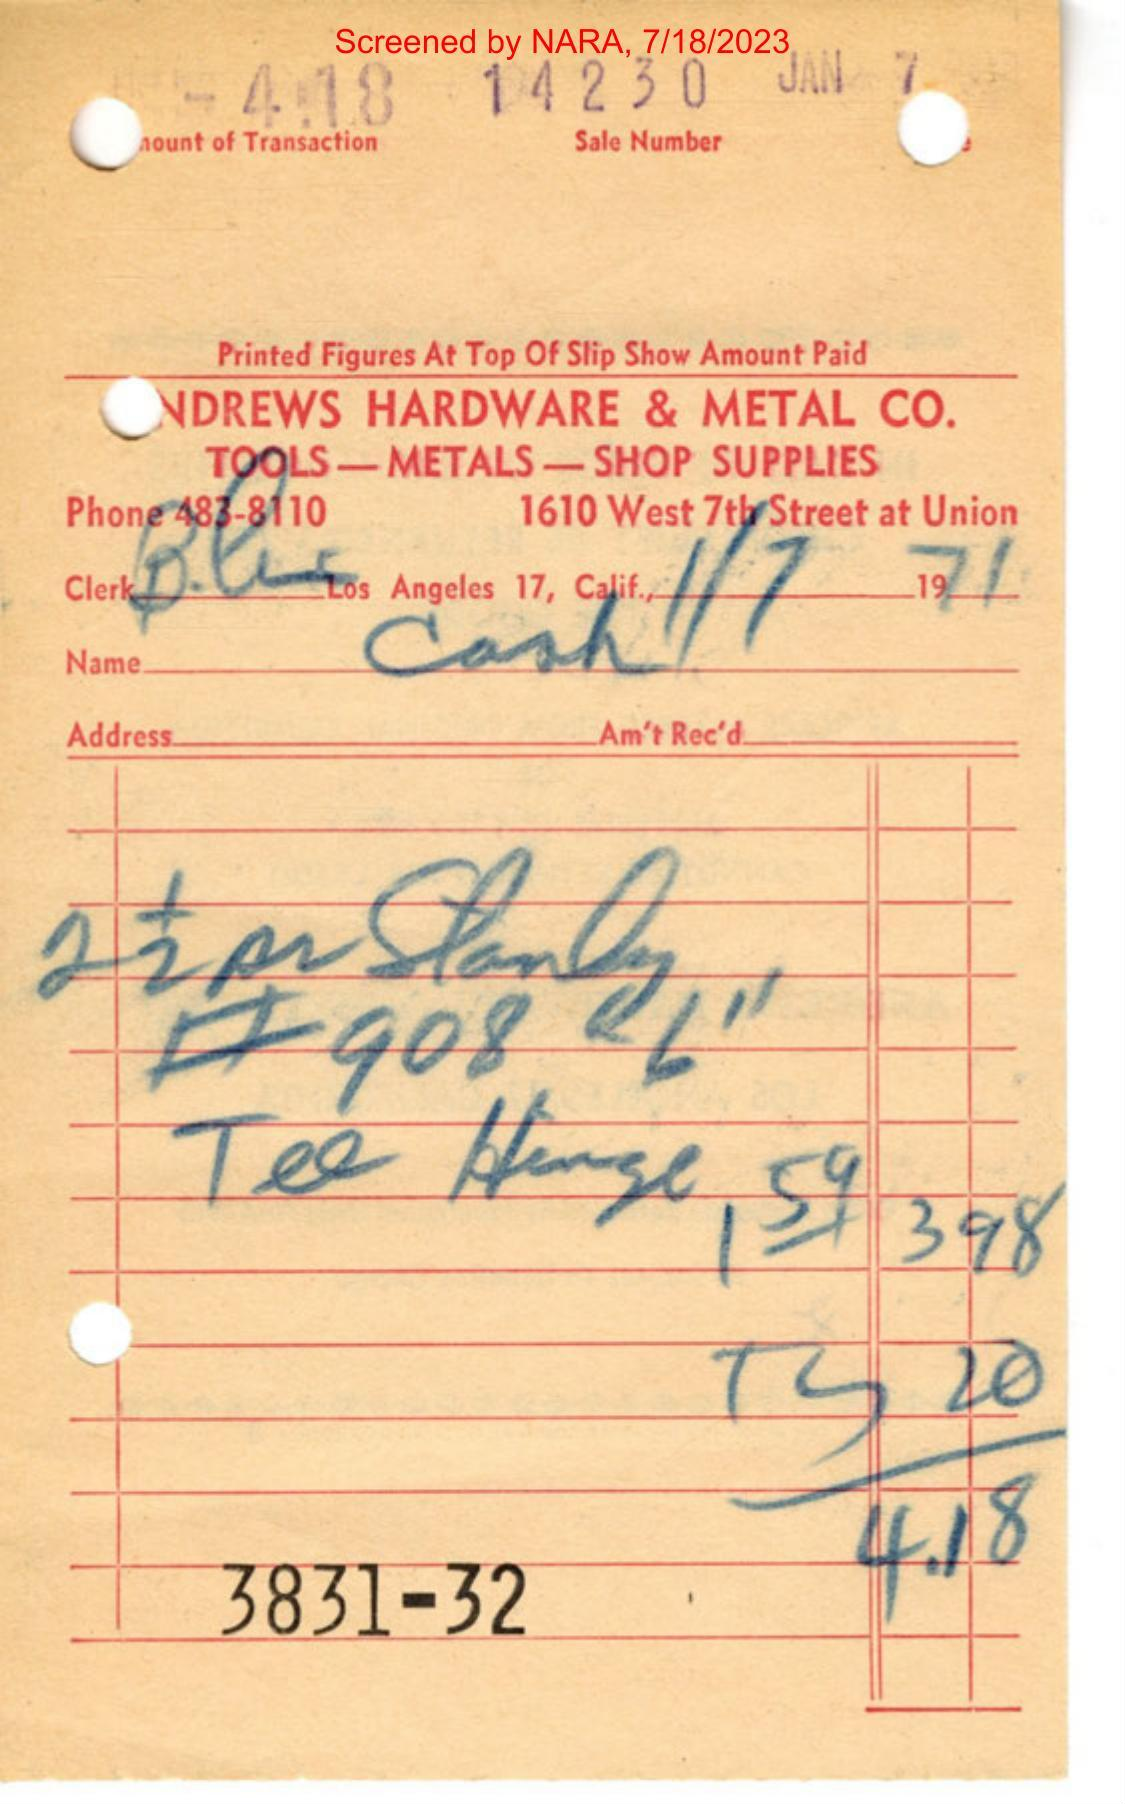 Screened by NARA, 7/18/2023
- 4.18 14230 JAN 7
mount of Transaction Sale Number e
Printed Figures At Top Of Slip Show Amount Paid
NDREWS HARDWARE & METAL CO.
TOOLS — METALS — SHOP SUPPLIES
Phone 483-8110 1610 West 7th Street at Union
Clerk Los Angeles 17, Calif., 1/7 1971
Name Cash
Address Am't Rec'd
2 1/2 pr Stanley
# 908 6"
Tee Hinge
1 59 3 98
20
4.18
3831-32